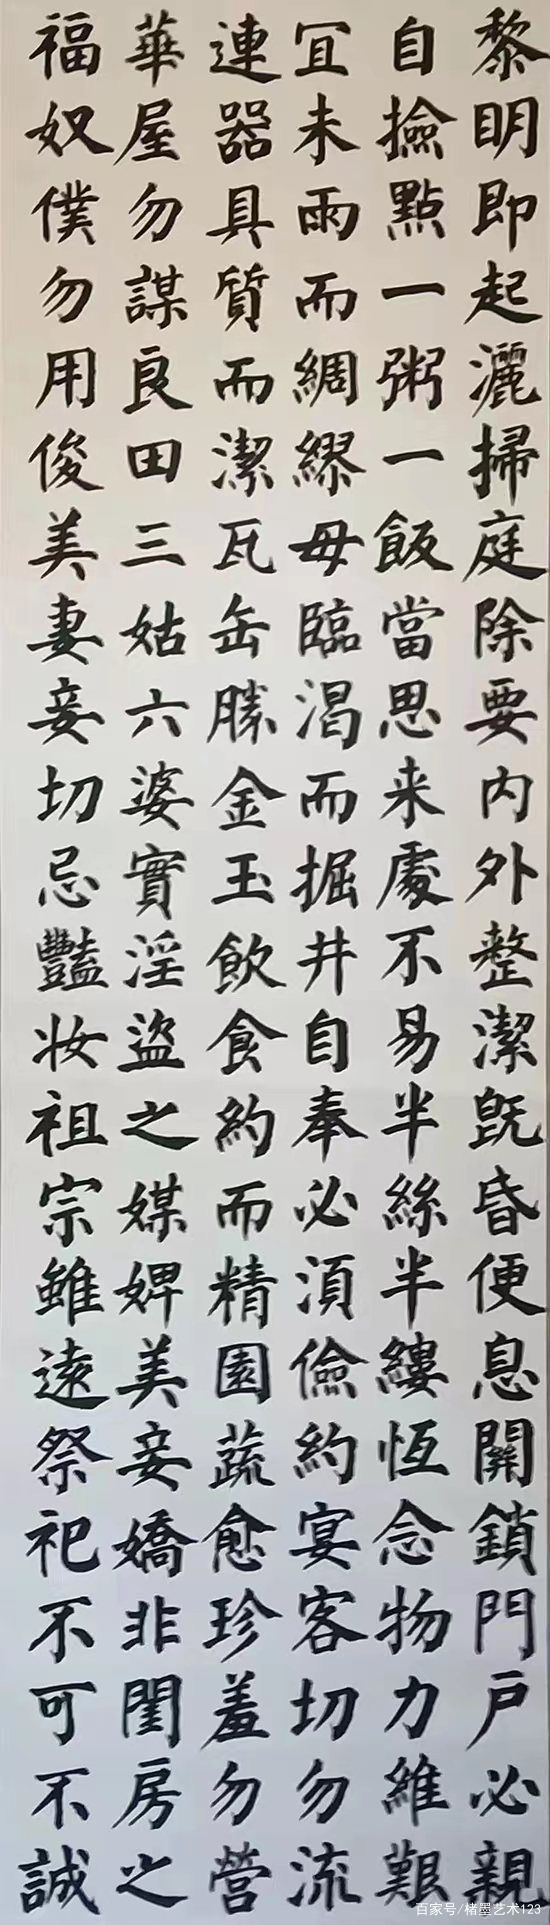 黎明即起灑掃庭除要內外整潔既昏便息關鎖門戶必親
自撿點一粥一飯當思来處不易半絲半縷恆念物力維艱
宜未雨而綢繆毋臨渴而掘井自奉必須儉約宴客切勿流
連器具質而潔瓦缶勝金玉飲食約而精園蔬愈珍羞勿營
華屋勿謀良田三姑六婆實淫盜之媒婢美妾嬌非閨房之
福奴僕勿用俊美妻妾切忌豔妝祖宗雖遠祭祀不可不誠
百家号/楮墨艺术123